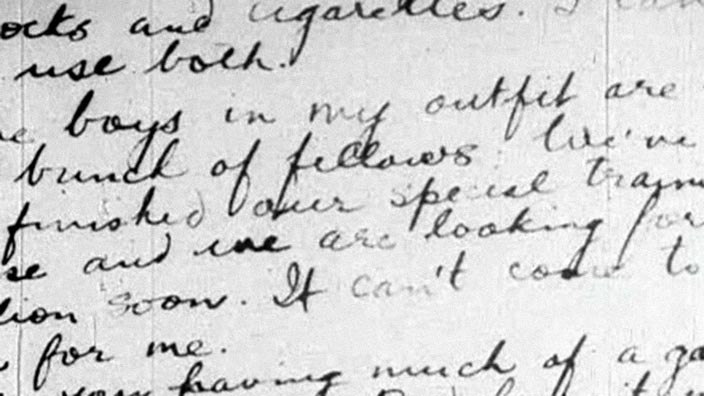 ocks and cigarettes. I can
use both.
boys in my outfit are
bunch of fellows. We've
finished our special train
se and we are looking for
tion soon. It can't come to
for me.
having much of a ga